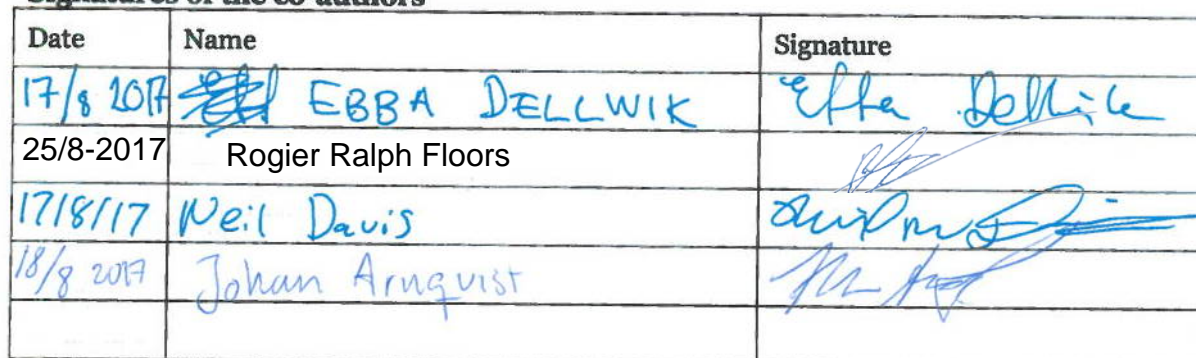 Signatures of the co-authors
Date Name Signature
17/8 2017 EBBA DELLWIK Ebba Dellwik
25/8-2017 Rogier Ralph Floors
17/8/17 Neil Davis
18/8 2017 Johan Arnqvist